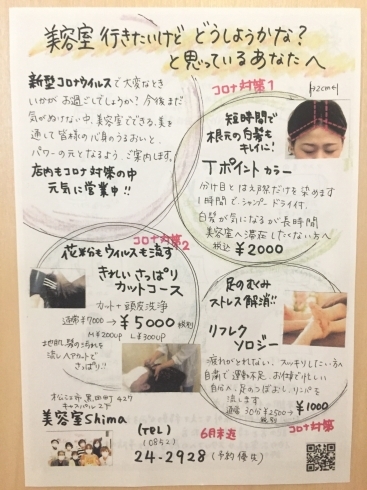 美容室 行きたいけど どうしようかな?
と思っているあなたへ
新型コロナウイルスで大変なとき
いかがお過ごしでしょうか? 今後まだ
気がぬけない中、美容室でできる、美を
通して皆様の心身のうるおいと、
パワーの元となるよう、ご案内します。
店内もコロナ対策の中
元気に営業中!!
コロナ対策1
短時間で
根元の白髪も
キレイに!
Tポイントカラー
分け目とはえ際だけを染めます
1時間で、シャンプー ドライ付。
白髪が気になるが長時間
美容室へ滞在したくない方へ
税込 ¥2000
コロナ対策2
花粉もウイルスも流す
きれい さっぱり
カットコース
カット+頭皮洗浄
通常¥7000→¥5000 税別
M¥200UP L¥300UP
地肌、髪の汚れを
流しヘアカットで
さっぱり!!
足のむくみ
ストレス解消!!
リフレク
ソロジー
疲れがとれない、スッキリしたい方へ
自粛で運動不足、お体で忙しい
足のつぼおし、リンパを
流します
通常30分¥2500→¥1000
税別
コロナ対策
松江市黒田町427
美容室Shima
(TEL)
(0852)
24-2928 (予約優先)
6月末迄